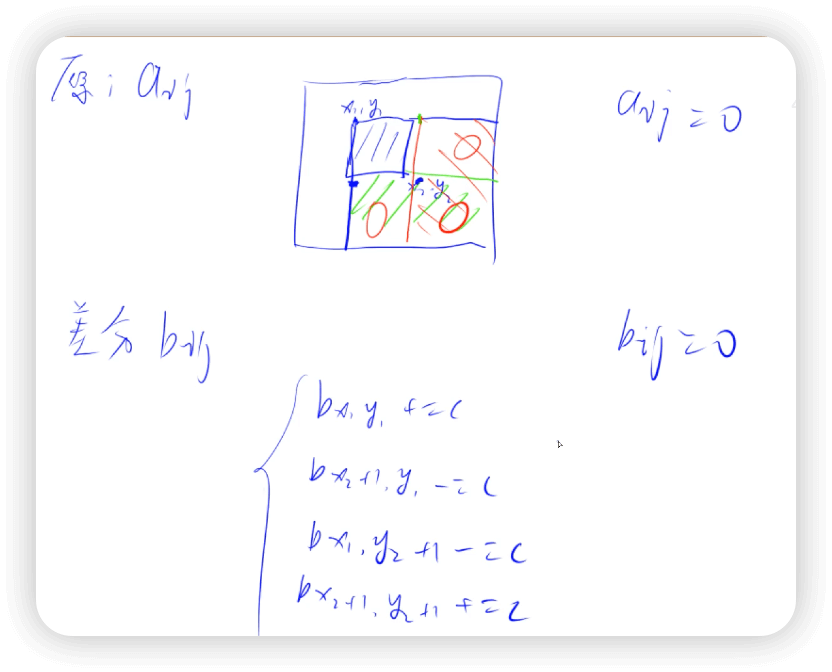 原: aij
aij = 0
x1, y1
x2, y2
差分 bij
bij = 0
bx1,y1 += c
bx2+1,y1 -= c
bx1,y2+1 -= c
bx2+1,y2+1 += c